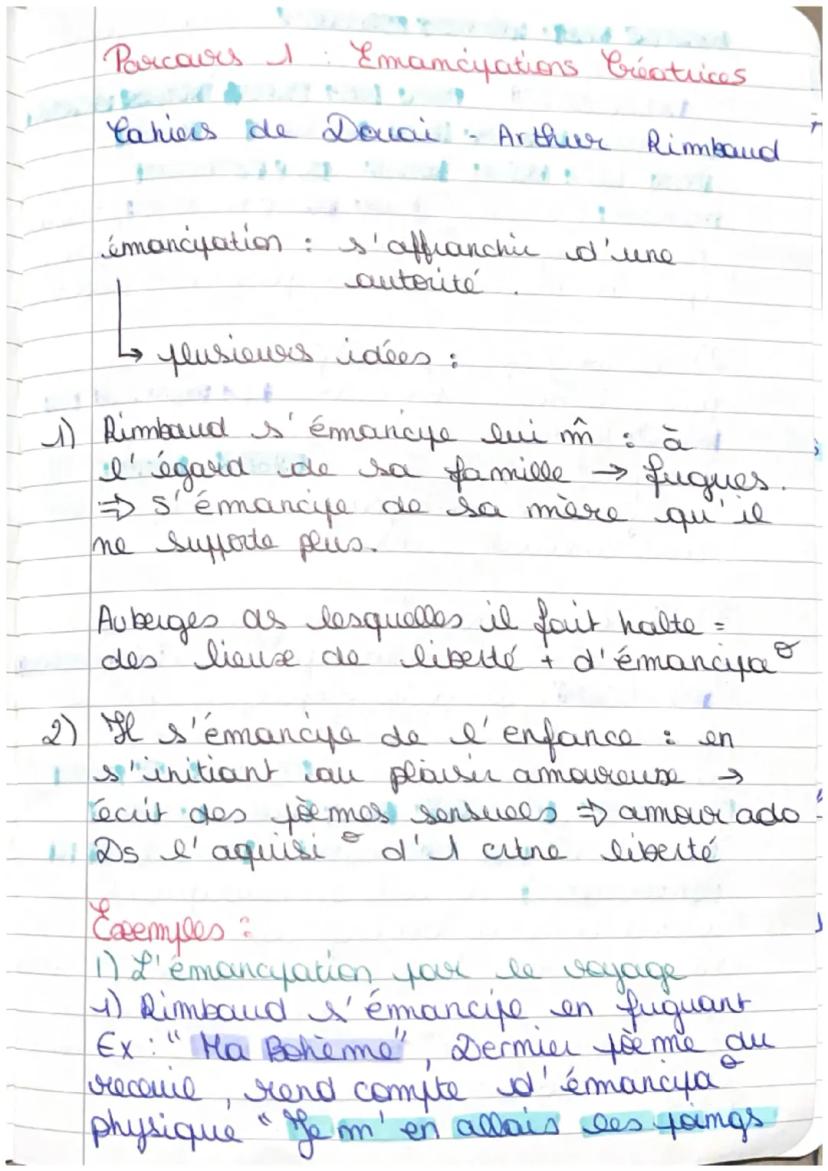 Parcours 1 : Emancipations Créatrices
Cahiers de Douai - Arthur Rimbaud
émancipation : s'affranchir d'une
autorité.
↳ plusieurs idées :
1) Rimbaud s'émancipe lui m̂ : à
l'égard de sa famille → fugues.
⇒ s'émancipe de sa mère qu'il
ne supporte plus.
Auberges ds lesquelles il fait halte =
des lieux de liberté + d'émancipaᶿ
2) Il s'émancipe de l'enfance : en
s'initiant au plaisir amoureux →
écrit des poèmes sensuels ⇒ amour ado
Ds l'aquisiᶿ d'1 crtne liberté
Exemples :
1) L'émancipation par le voyage
1) Rimbaud s'émancipe en fuguant
Ex : "Ma Bohème", Dernier poème du
recueil, rend compte d'émancipaᶿ
physique "Je m'en allais les poings